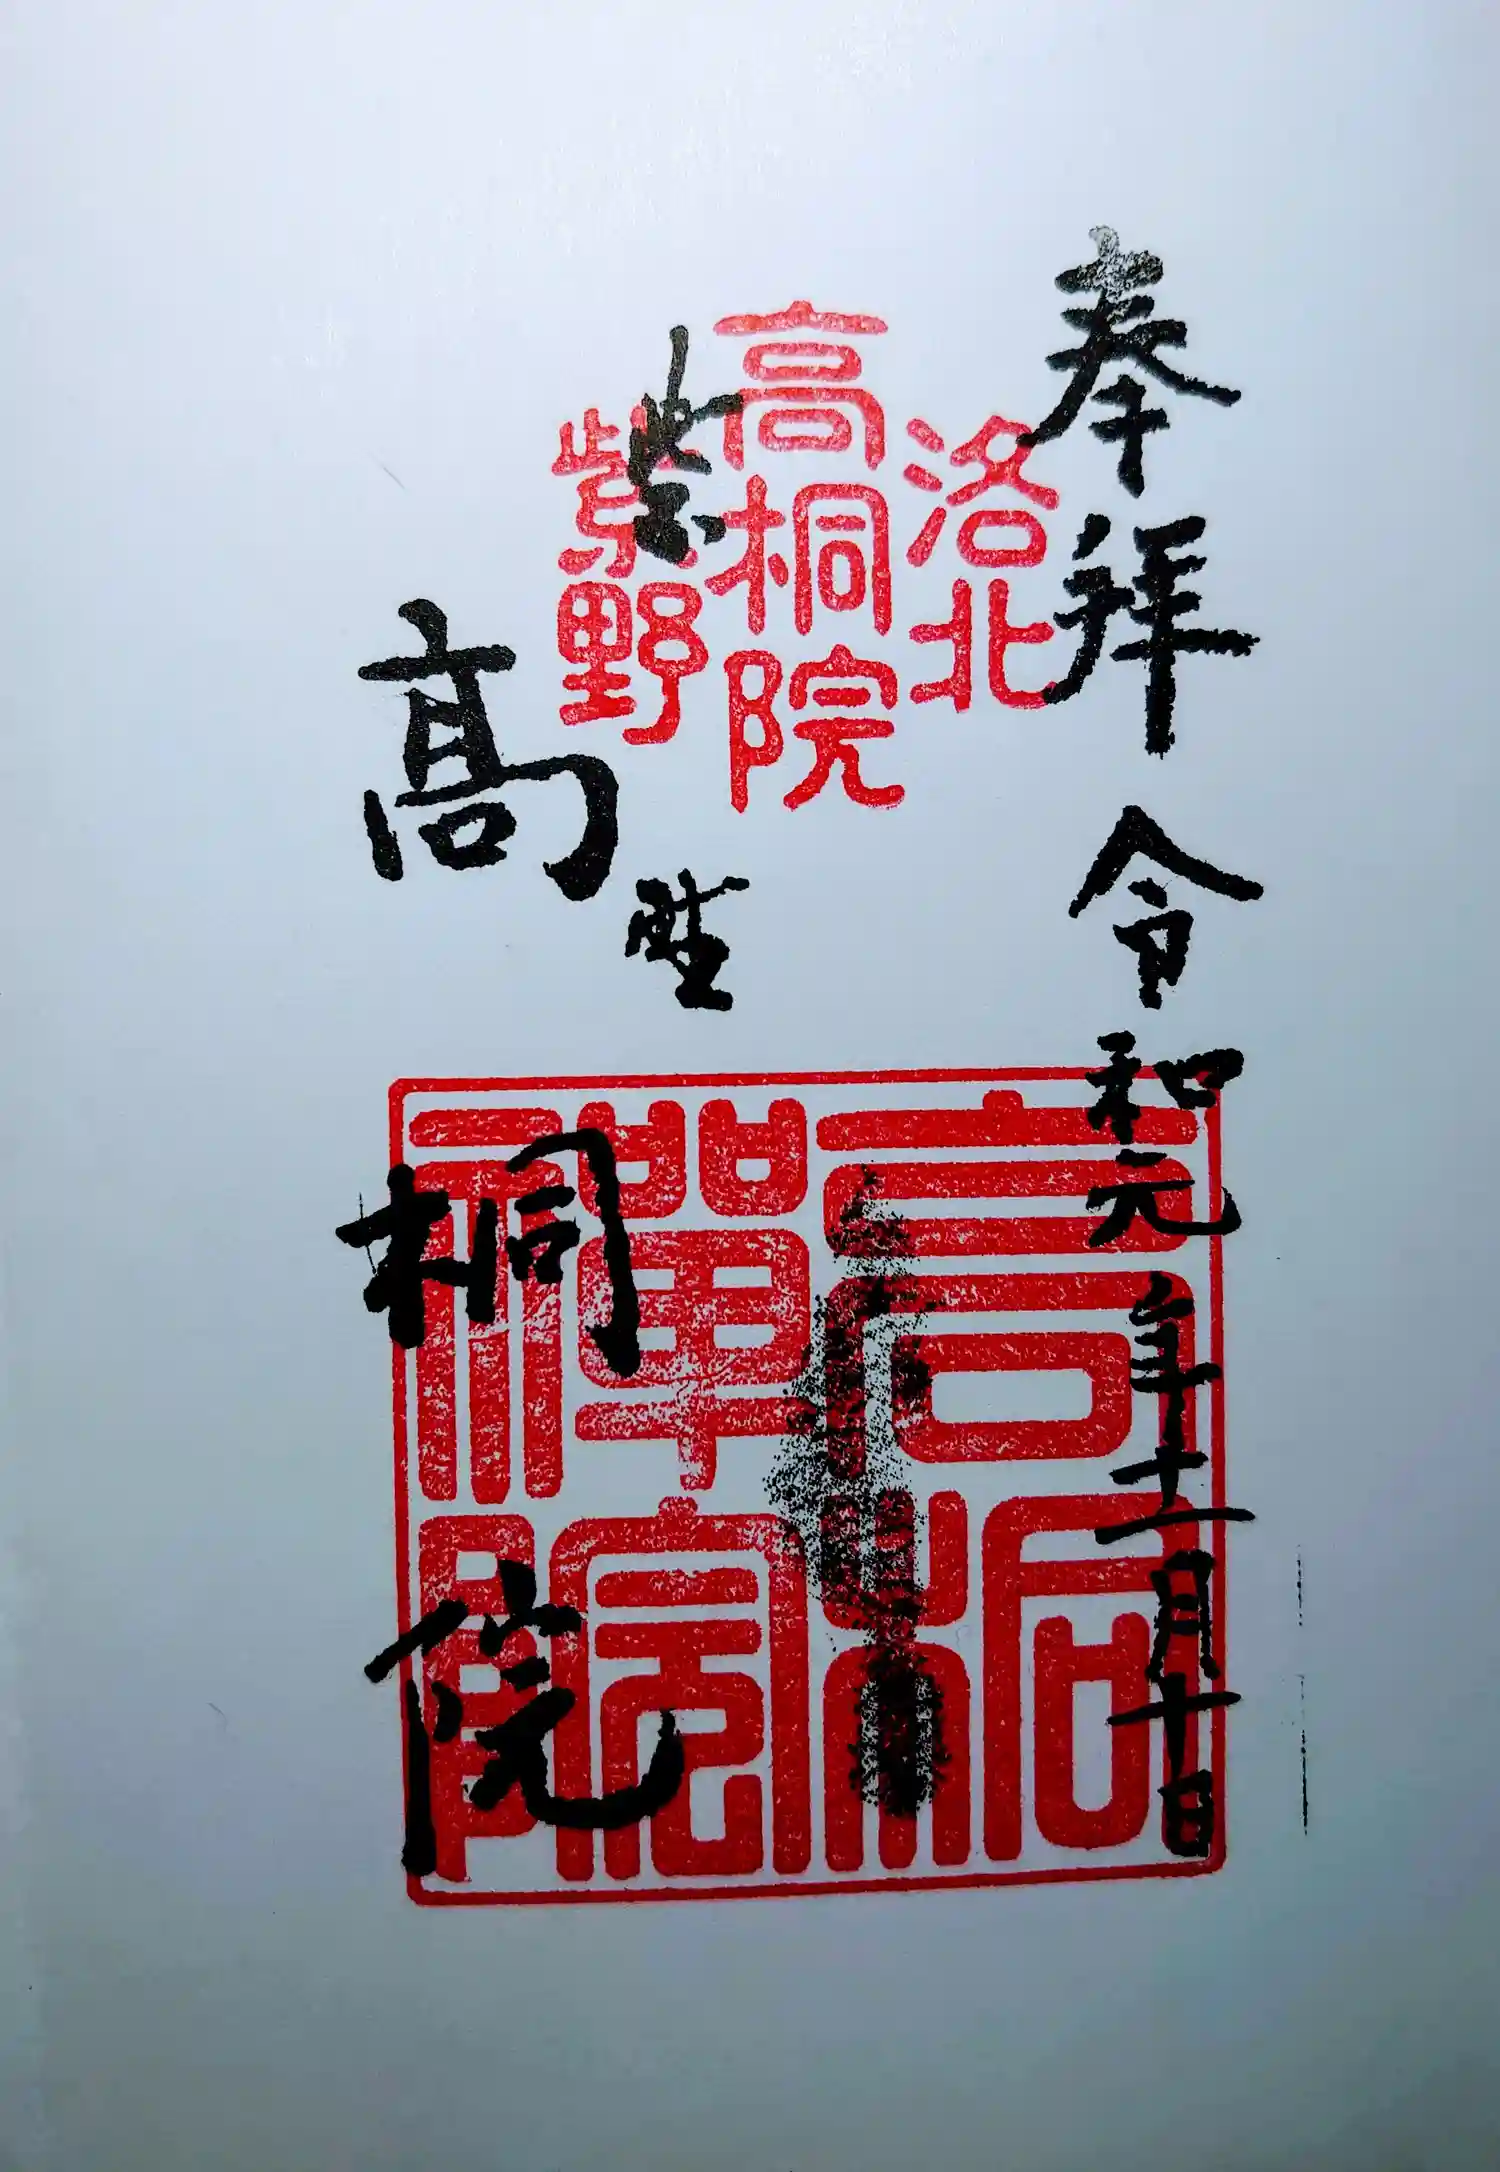 奉拝 令和元年十一月十日
洛北
高桐院
紫野
紫野
高桐院
高桐禅院